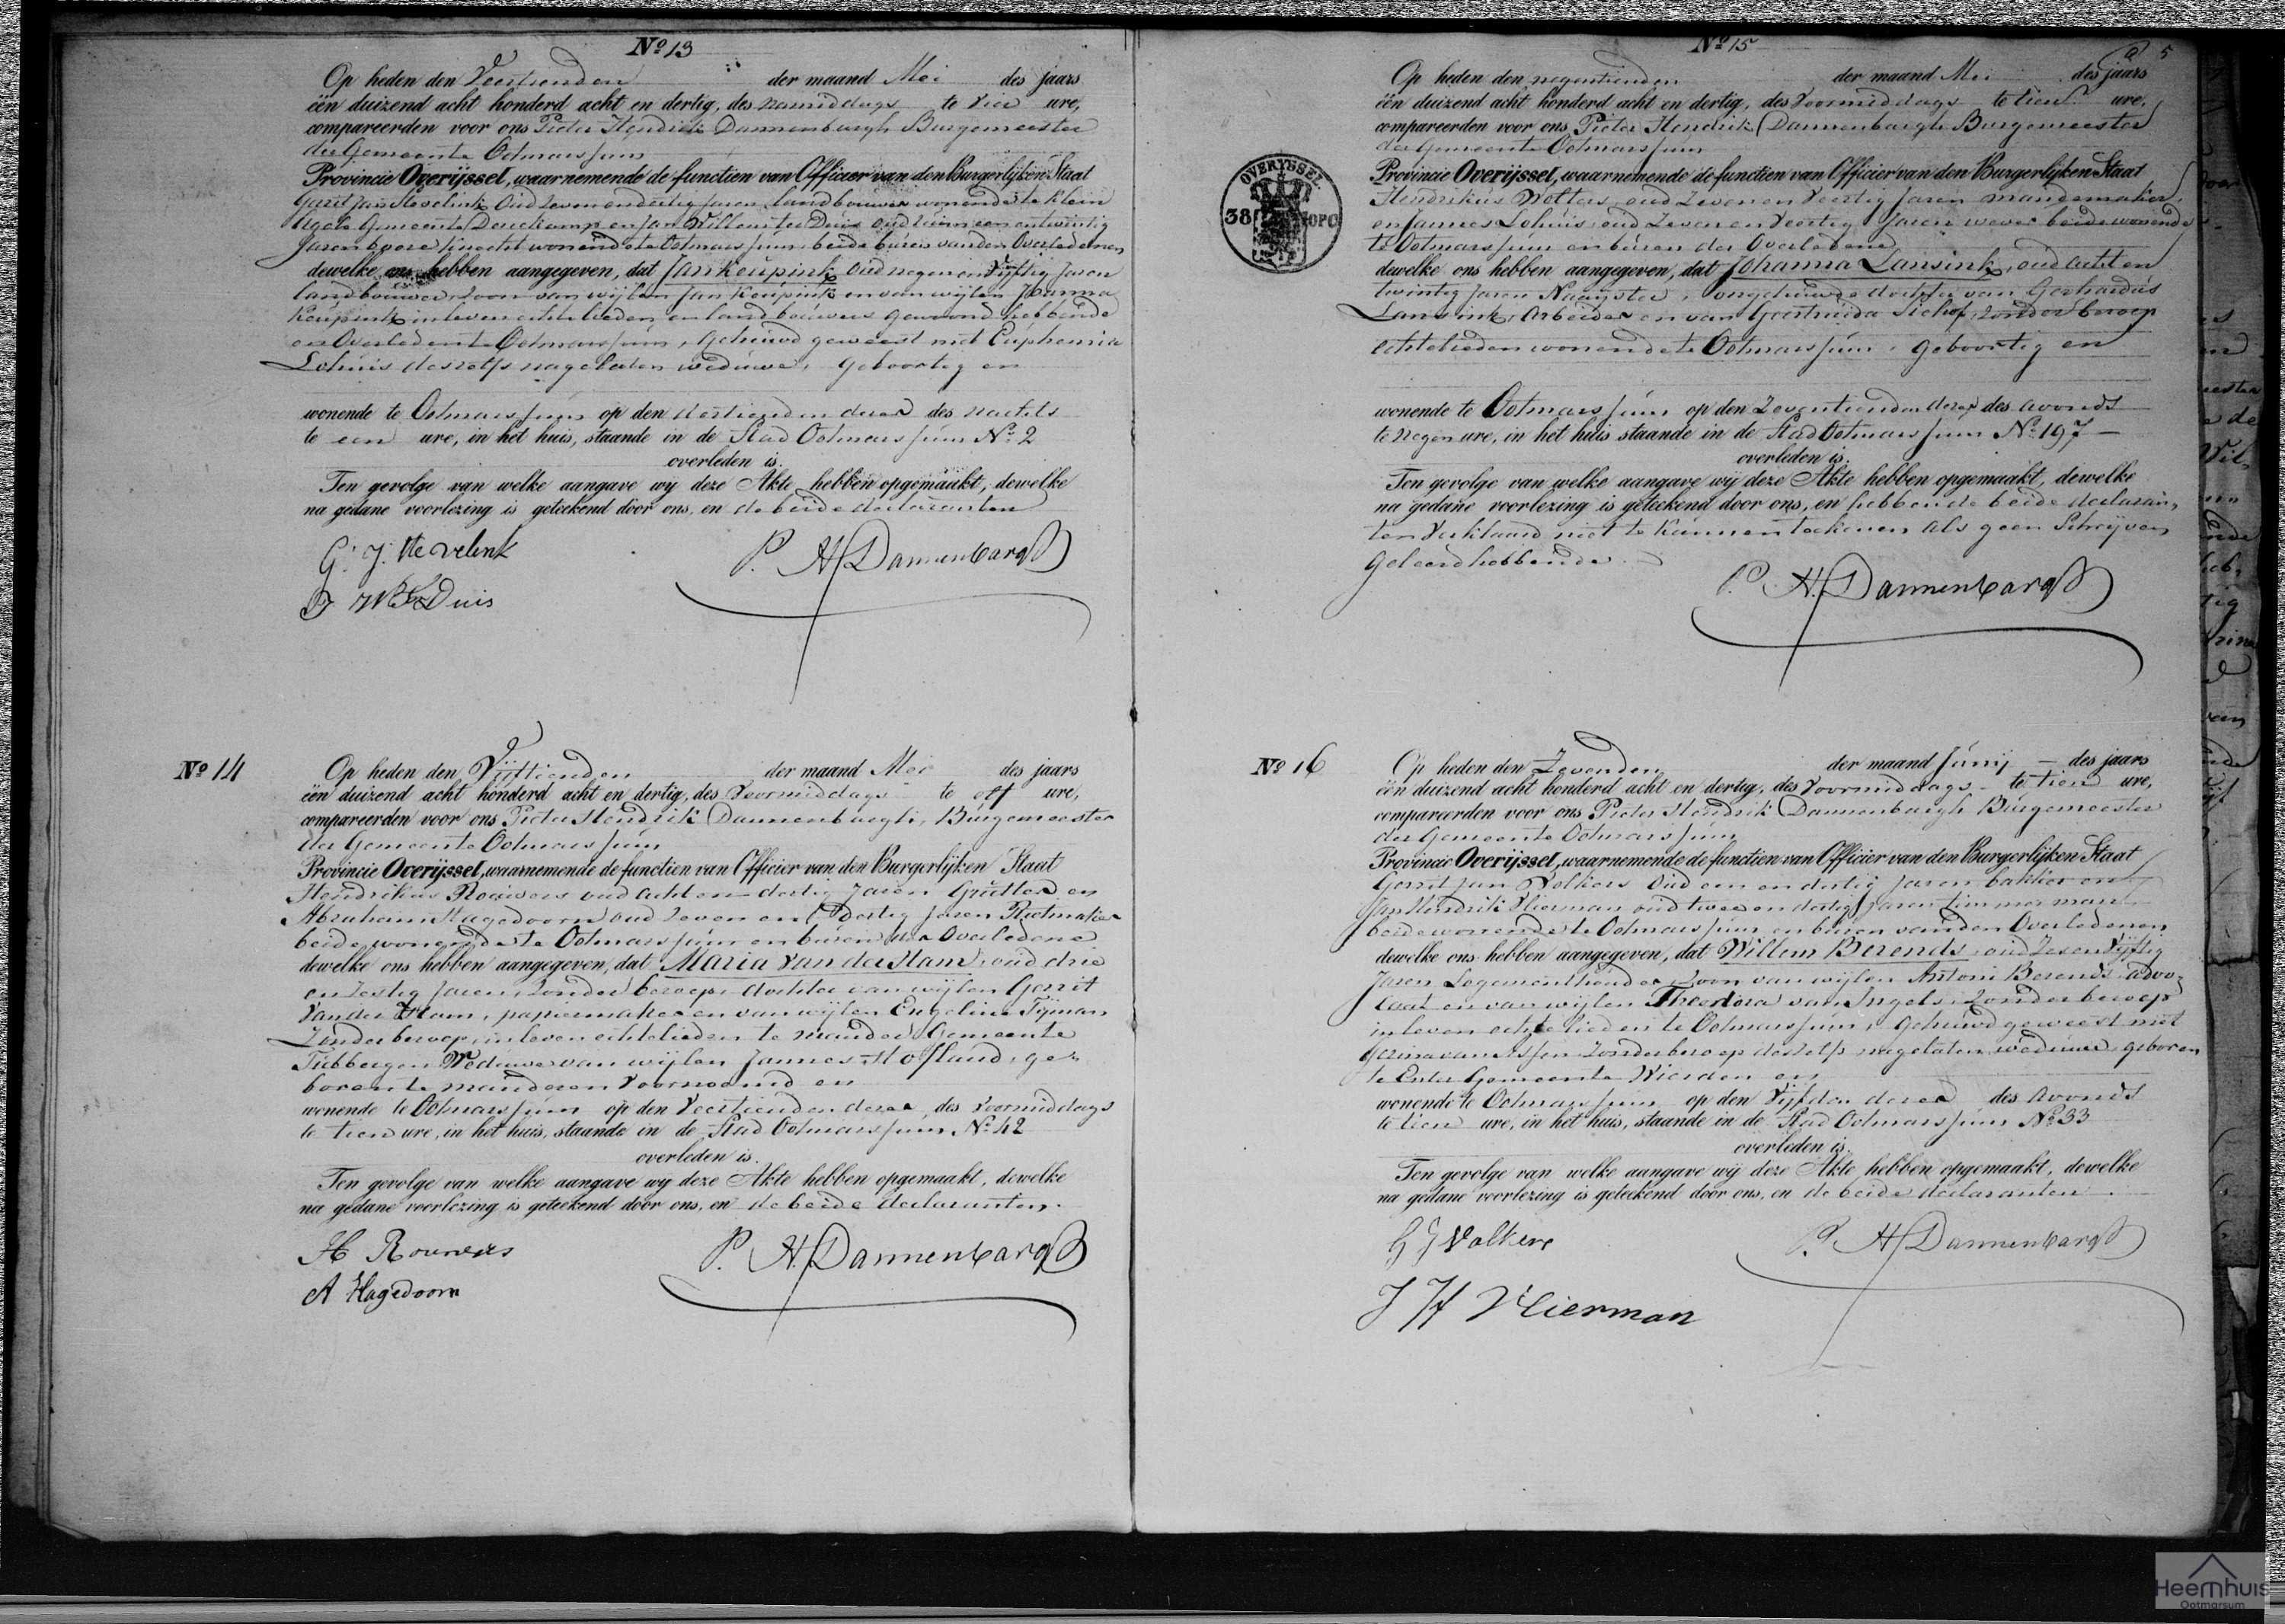 Nº 13
Op heden den Veertienden der maand Mei des jaars
één duizend acht honderd acht en dertig, des namiddags te vier ure,
compareerden voor ons Pieter Hendrik Dannenbargh Burgemeester
der Gemeente Ootmarssum
Provincie Overijssel, waarnemende de functien van Officier van den Burgerlijken Staat
Gerrit Jan Hevelink Oud Zeven en dertig Jaren landbouwer wonende te klein
Agele Gemeente Denekamp en Jan Willem ter Duis oud een en twintig
Jaren boere Knecht wonende te Ootmarssum beide buren van den Overledenen
dewelke ons hebben aangegeven, dat Jan Keupink Oud negen en Vijftig Jaren
landbouwer Zoon van wijlen Jan Keupink en van wijlen
Keupink in leven echtelieden en landbouwers gewoond hebbende
en Overleden te Ootmarssum, Gehuwd geweest met Euphemia
Lohuis deszelfs nagelaten weduwe, Geboortig en
wonende te Ootmarssum op den dertienden dezer des nachts
te een ure, in het huis, staande in de Stad Ootmarssum Nº 2
overleden is.
Ten gevolge van welke aangave wij deze Akte hebben opgemaakt, dewelke
na gedane voorlezing is geteekend door ons, en de beide declaranten
G. J. Hevelink
P. H. Dannenbargh
J W ter Duis
Nº 14
Op heden den Vijftienden der maand Mei des jaars
één duizend acht honderd acht en dertig, des Voormiddags te elf ure,
compareerden voor ons Pieter Hendrik Dannenbargh, Burgemeester
der Gemeente Ootmarssum
Provincie Overijssel, waarnemende de functien van Officier van den Burgerlijken Staat
Hendrikus Rouwers oud acht en dertig Jaren Grutter en
Abraham Hagedoorn oud Zeven en dertig Jaren
beide wonende te Ootmarssum en buren der Overledene
dewelke ons hebben aangegeven, dat Maria Van der Ham, oud drie
en Zestig Jaren, Zonder beroep, dochter van wijlen Gerrit
Van der Ham, papiermaker en van wijlen Engelina Tijman
Zonder beroep, in leven echtelieden te Mander Gemeente
Tubbergen Weduwe van wijlen Jannes Hofland, ge-
boren te manderen Voornoemd en
wonende te Ootmarssum op den Veertienden dezer, des voormiddags
te tien ure, in het huis, staande in de Stad Ootmarssum Nº 42
overleden is.
Ten gevolge van welke aangave wij deze Akte hebben opgemaakt, dewelke
na gedane voorlezing is geteekend door ons, en de beide declaranten.
H Rouwers
P. H. Dannenbargh
A Hagedoorn
Nº 15
5
Op heden den negentienden der maand Mei des jaars
één duizend acht honderd acht en dertig, des Voormiddags te tien ure,
compareerden voor ons Pieter Hendrik Dannenbargh Burgemeester
der Gemeente Ootmarssum
OVERYSSEL
38
OPC
Provincie Overijssel, waarnemende de functien van Officier van den Burgerlijken Staat
Hendrikus Wolters, oud Zeven en Veertig Jaren mandemaker,
en Jannes Lohuis, oud Zeven en Veertig Jaren wever beide wonende
te Ootmarssum en buren der Overledene
dewelke ons hebben aangegeven, dat Johanna Lansink, oud acht en
twintig Jaren Naaijster, ongehuwde dochter van Gerhardus
Lansink, Arbeider en van Geertruida Sichof, zonder beroep
echtelieden wonende te Ootmarssum, Geboortig en
wonende te Ootmarssum op den Zeventienden dezer des avonds
te negen ure, in het huis staande in de Stad Ootmarssum Nº 197
overleden is.
Ten gevolge van welke aangave wij deze Akte hebben opgemaakt, dewelke
na gedane voorlezing is geteekend door ons, en hebbende beide declaran-
ten verklaard niet te kunnen teekenen als geen Schrijven
Geleerd hebbende
P. H. Dannenbargh
Nº 16
Op heden den Zevenden der maand Junij des jaars
één duizend acht honderd acht en dertig, des Voormiddags te tien ure,
compareerden voor ons Pieter Hendrik Dannenbargh Burgemeester
der Gemeente Ootmarssum
Provincie Overijssel, waarnemende de functien van Officier van den Burgerlijken Staat
Gerrit Jan Volkers Oud een en dertig Jaren bakker en
Jan Hendrik Vlierman oud twee en dertig Jaren timmerman
beide wonende te Ootmarssum en buren van den Overledenen
dewelke ons hebben aangegeven, dat Willem Berends, oud Zes en Vijftig
Jaren Logementhouder, Zoon van wijlen Antoni Berends advo-
caat en van wijlen Theodora van Ingels, Zonder beroep
in leven echtelieden te Ootmarssum, Gehuwd geweest met
Gezina van Assen Zonder beroep deszelfs nagelaten weduwe, geboren
te Enter Gemeente Wierden en
wonende te Ootmarssum op den Vijfden dezer des avonds
te tien ure, in het huis, staande in de Stad Ootmarssum Nº 33
overleden is.
Ten gevolge van welke aangave wij deze Akte hebben opgemaakt, dewelke
na gedane voorlezing is geteekend door ons, en de beide declaranten.
G J Volkers
P. H. Dannenbargh
J H Vlierman
Heemhuis
Ootmarsum